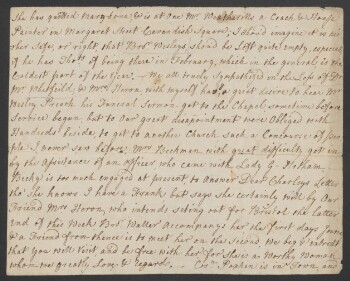 She has quitted Marybone, & is at one Mr. Weatherills a Coach & House
Painter in Margaret Street Cavendish Square; I should imagine it is neither
Safe, or right that Brr. Wesleys should be left quite empty, especially
if he has Thots. of being there in February, which in the general is the
Coldest part of the Year. — We all truly Sympathize in the Loss of Dr.
Mr. Whitefield, & Mrs. Herron, with myself had a great desire to hear Mr.
Wesley Preach his Funeral Sermon, got to the Chapel sometime before
Service began but to our Great disappointment were obliged with
Hundreds beside, to go to another Church such a Concourse of people
I never saw before; Mrs. Beckmen with great difficulty got in
by the assistance of an Officer who came with Lady G. Hotham.
Becky is too much engaged at present to Answer Dear Charleys Letter
tho' She knows I have a Frank but says she certainly will by our
Friend Mrs. Herron, who intends seting out for Bristol the latter
end of this Week Brr. Waller Accompanys her the first days journey
& a Friend from thence is to meet her on the Second, We beg & intreat
that you will visit and be free with her for She is a Worthy Woman
whom we greatly Love & Regard. is in Town, and